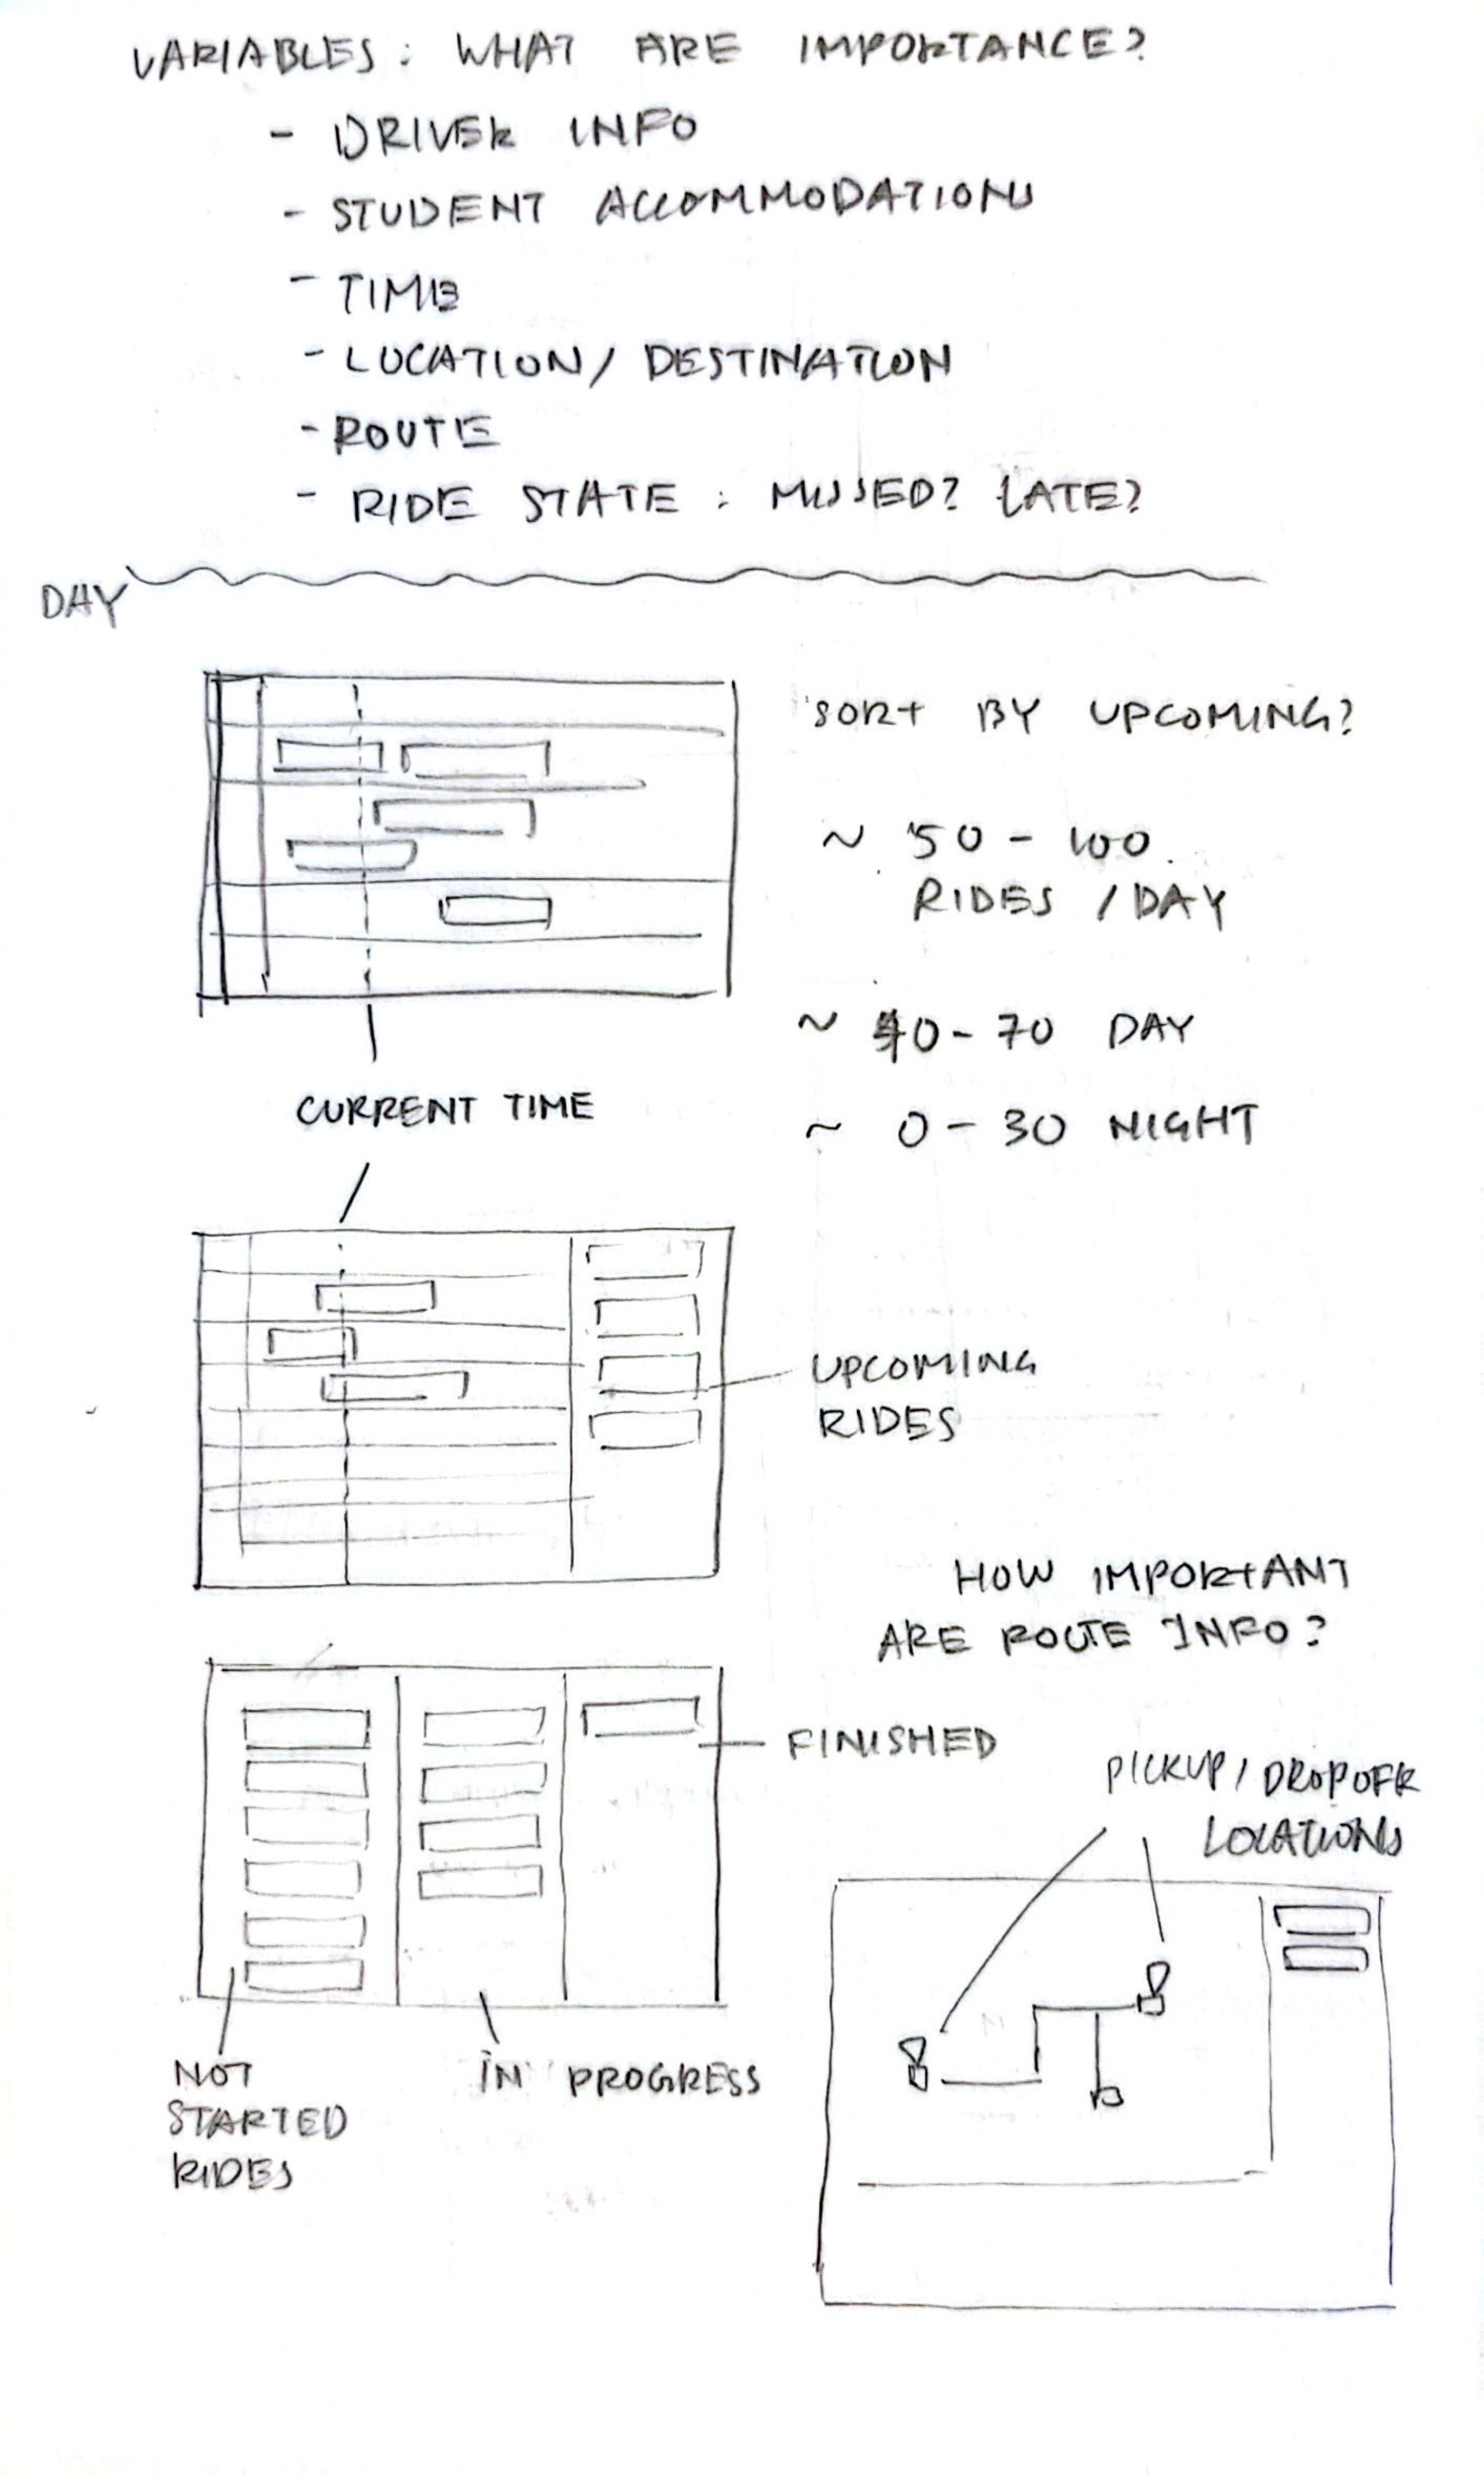 VARIABLES: WHAT ARE IMPORTANCE?
- DRIVER INFO
- STUDENT ACCOMMODATIONS
- TIME
- LOCATION/ DESTINATION
- ROUTE
- RIDE STATE: MISSED? LATE?
DAY
SORT BY UPCOMING?
~ 50 - 100
RIDES / DAY
~ 40 - 70 DAY
~ 0 - 30 NIGHT
CURRENT TIME
UPCOMING
RIDES
HOW IMPORTANT
ARE ROUTE INFO?
FINISHED
PICKUP / DROPOFF
LOCATIONS
NOT
STARTED
RIDES
IN PROGRESS